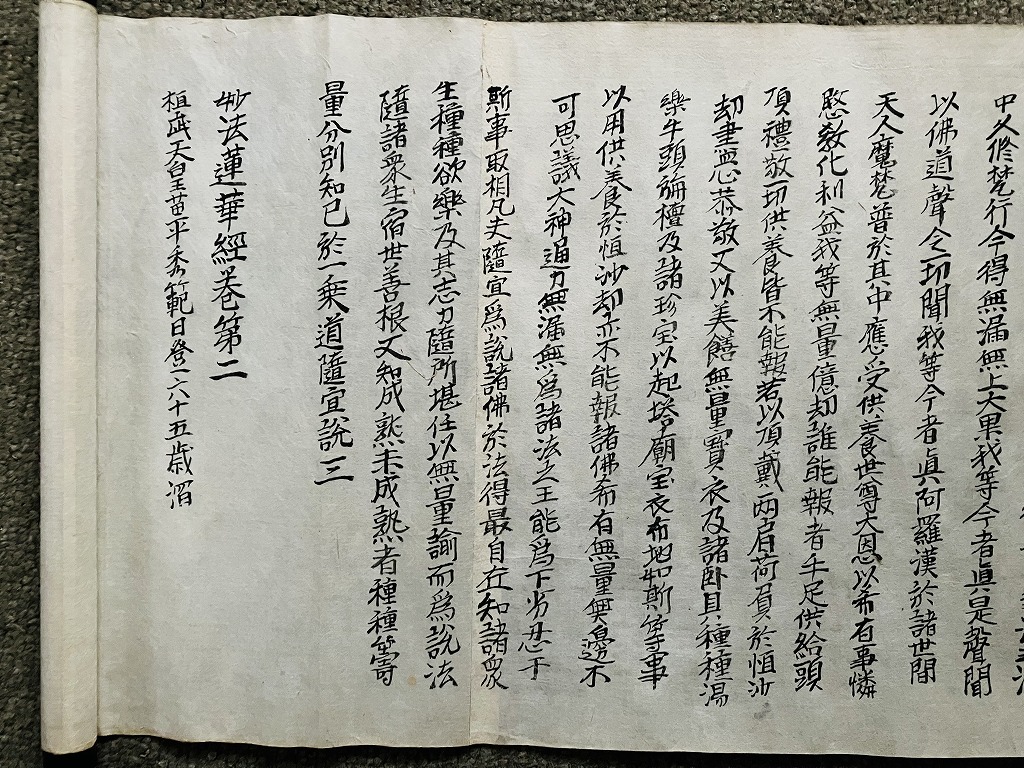 中久修梵行今得無漏無上大果我等今者眞是聲聞
以佛道聲令一切聞我等今者眞阿羅漢於諸世間
天人魔梵普於其中應受供養世尊大恩以希有事憐
愍敎化利益我等無量億劫誰能報者手足供給頭
頂禮敬一切供養皆不能報若以頂戴兩肩荷負於恒沙
劫盡心恭敬又以美饍無量寶衣及諸卧具種種湯
藥牛頭旃檀及諸珍宝以起塔廟宝衣布地如斯等事
以用供養於恒沙劫亦不能報諸佛希有無量無邊不
可思議大神通力無漏無為諸法之王能爲下劣忍于
斯事取相凡夫隨宜爲說諸佛於法得最自在知諸衆
生種種欲樂及其志力隨所堪任以無量諭而爲說法
隨諸衆生宿世善根又知成熟未成熟者種種籌
量分別知已於一乘道隨宜說三
妙法蓮華經卷第二
桓武天台王苗平秀範日登六十五歳